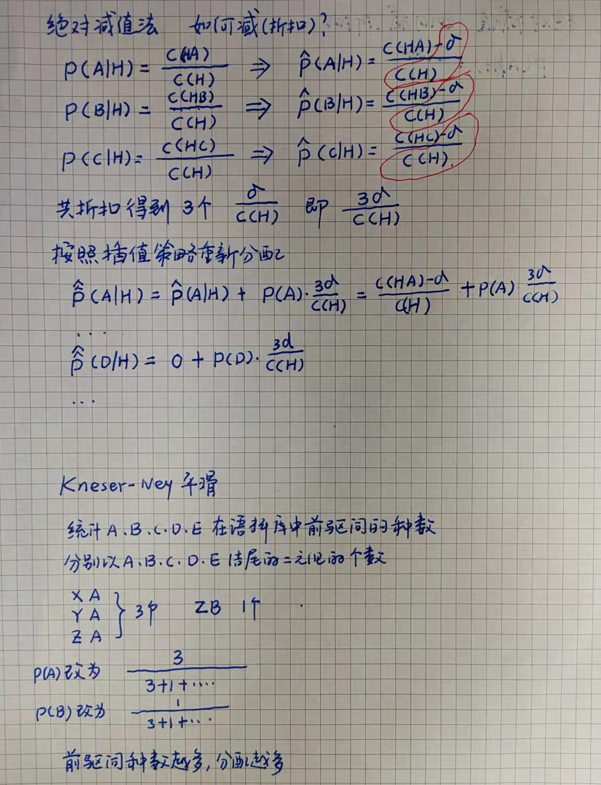 绝对减值法 如何减(折扣)?
P(A|H) = C(HA) / C(H) ⇒ p̂(A|H) = C(HA)-d / C(H)
P(B|H) = C(HB) / C(H) ⇒ p̂(B|H) = C(HB)-d / C(H)
P(C|H) = C(HC) / C(H) ⇒ p̂(C|H) = C(HC)-d / C(H)
共折扣得到 3个 d / C(H) 即 3d / C(H)
按照插值策略重新分配
p̂̂(A|H) = p̂(A|H) + P(A)·3d / C(H) = C(HA)-d / C(H) + P(A) 3d / C(H)
...
p̂̂(D|H) = 0 + P(D)·3d / C(H)
...
Kneser-Ney 平滑
统计A.B.C.D.E 在语料库中前驱词的种数
分别以A.B.C.D.E 结尾的二元组的个数
X A
Y A } 3个 ZB 1个
Z A
P(A)改为 3 / 3+1+····
P(B)改为 1 / 3+1+···
前驱词种数越多,分配越多